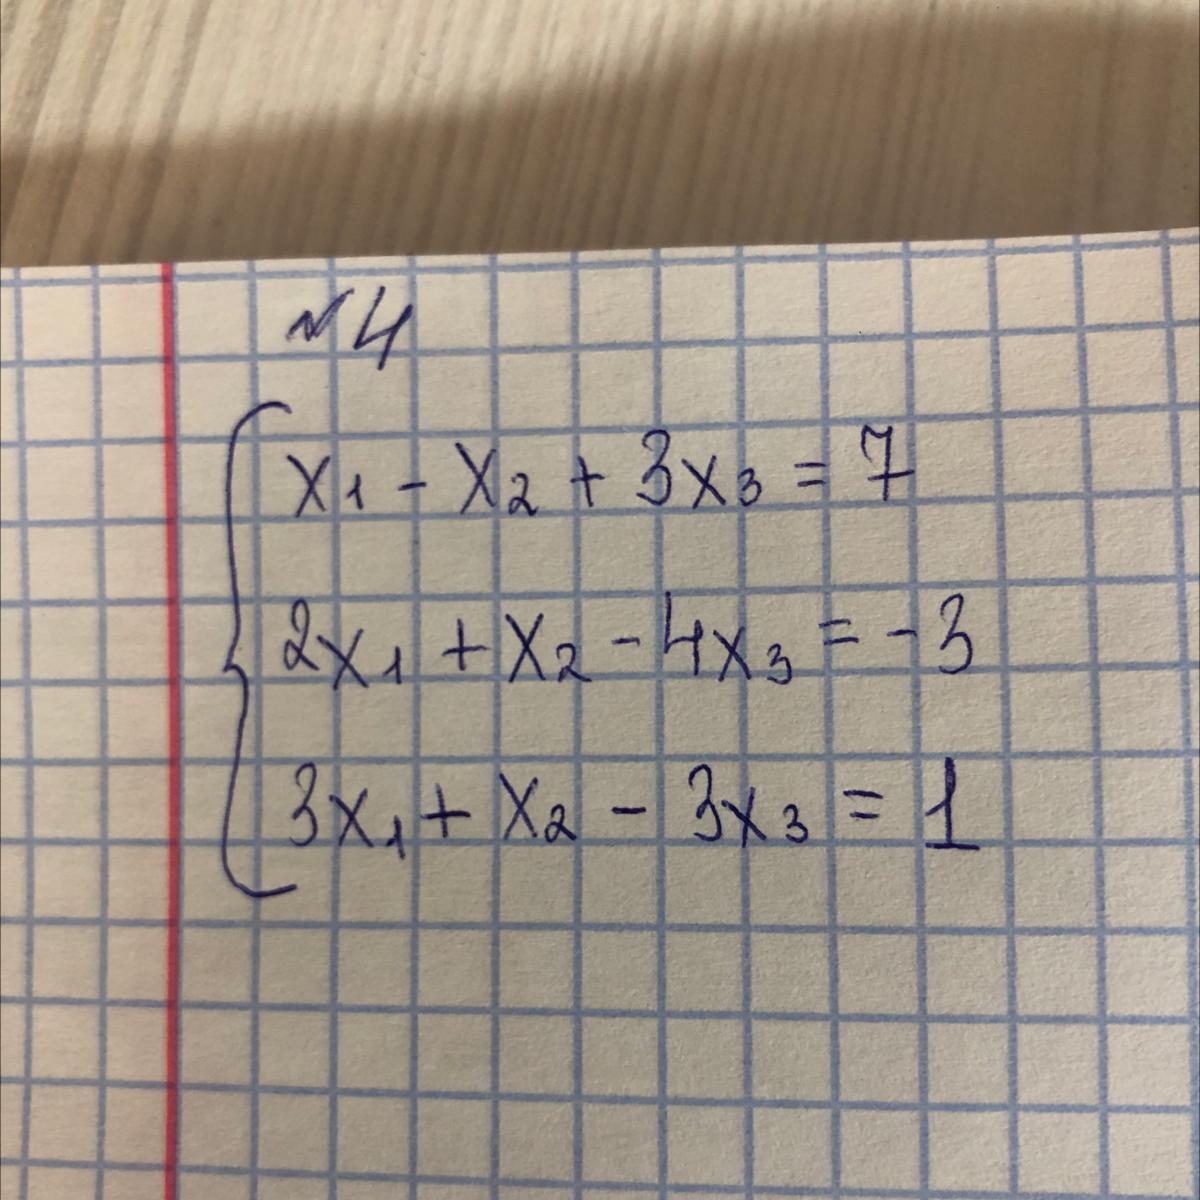 №4
x₁ - x₂ + 3x₃ = 7
2x₁ + x₂ - 4x₃ = -3
3x₁ + x₂ - 3x₃ = 1